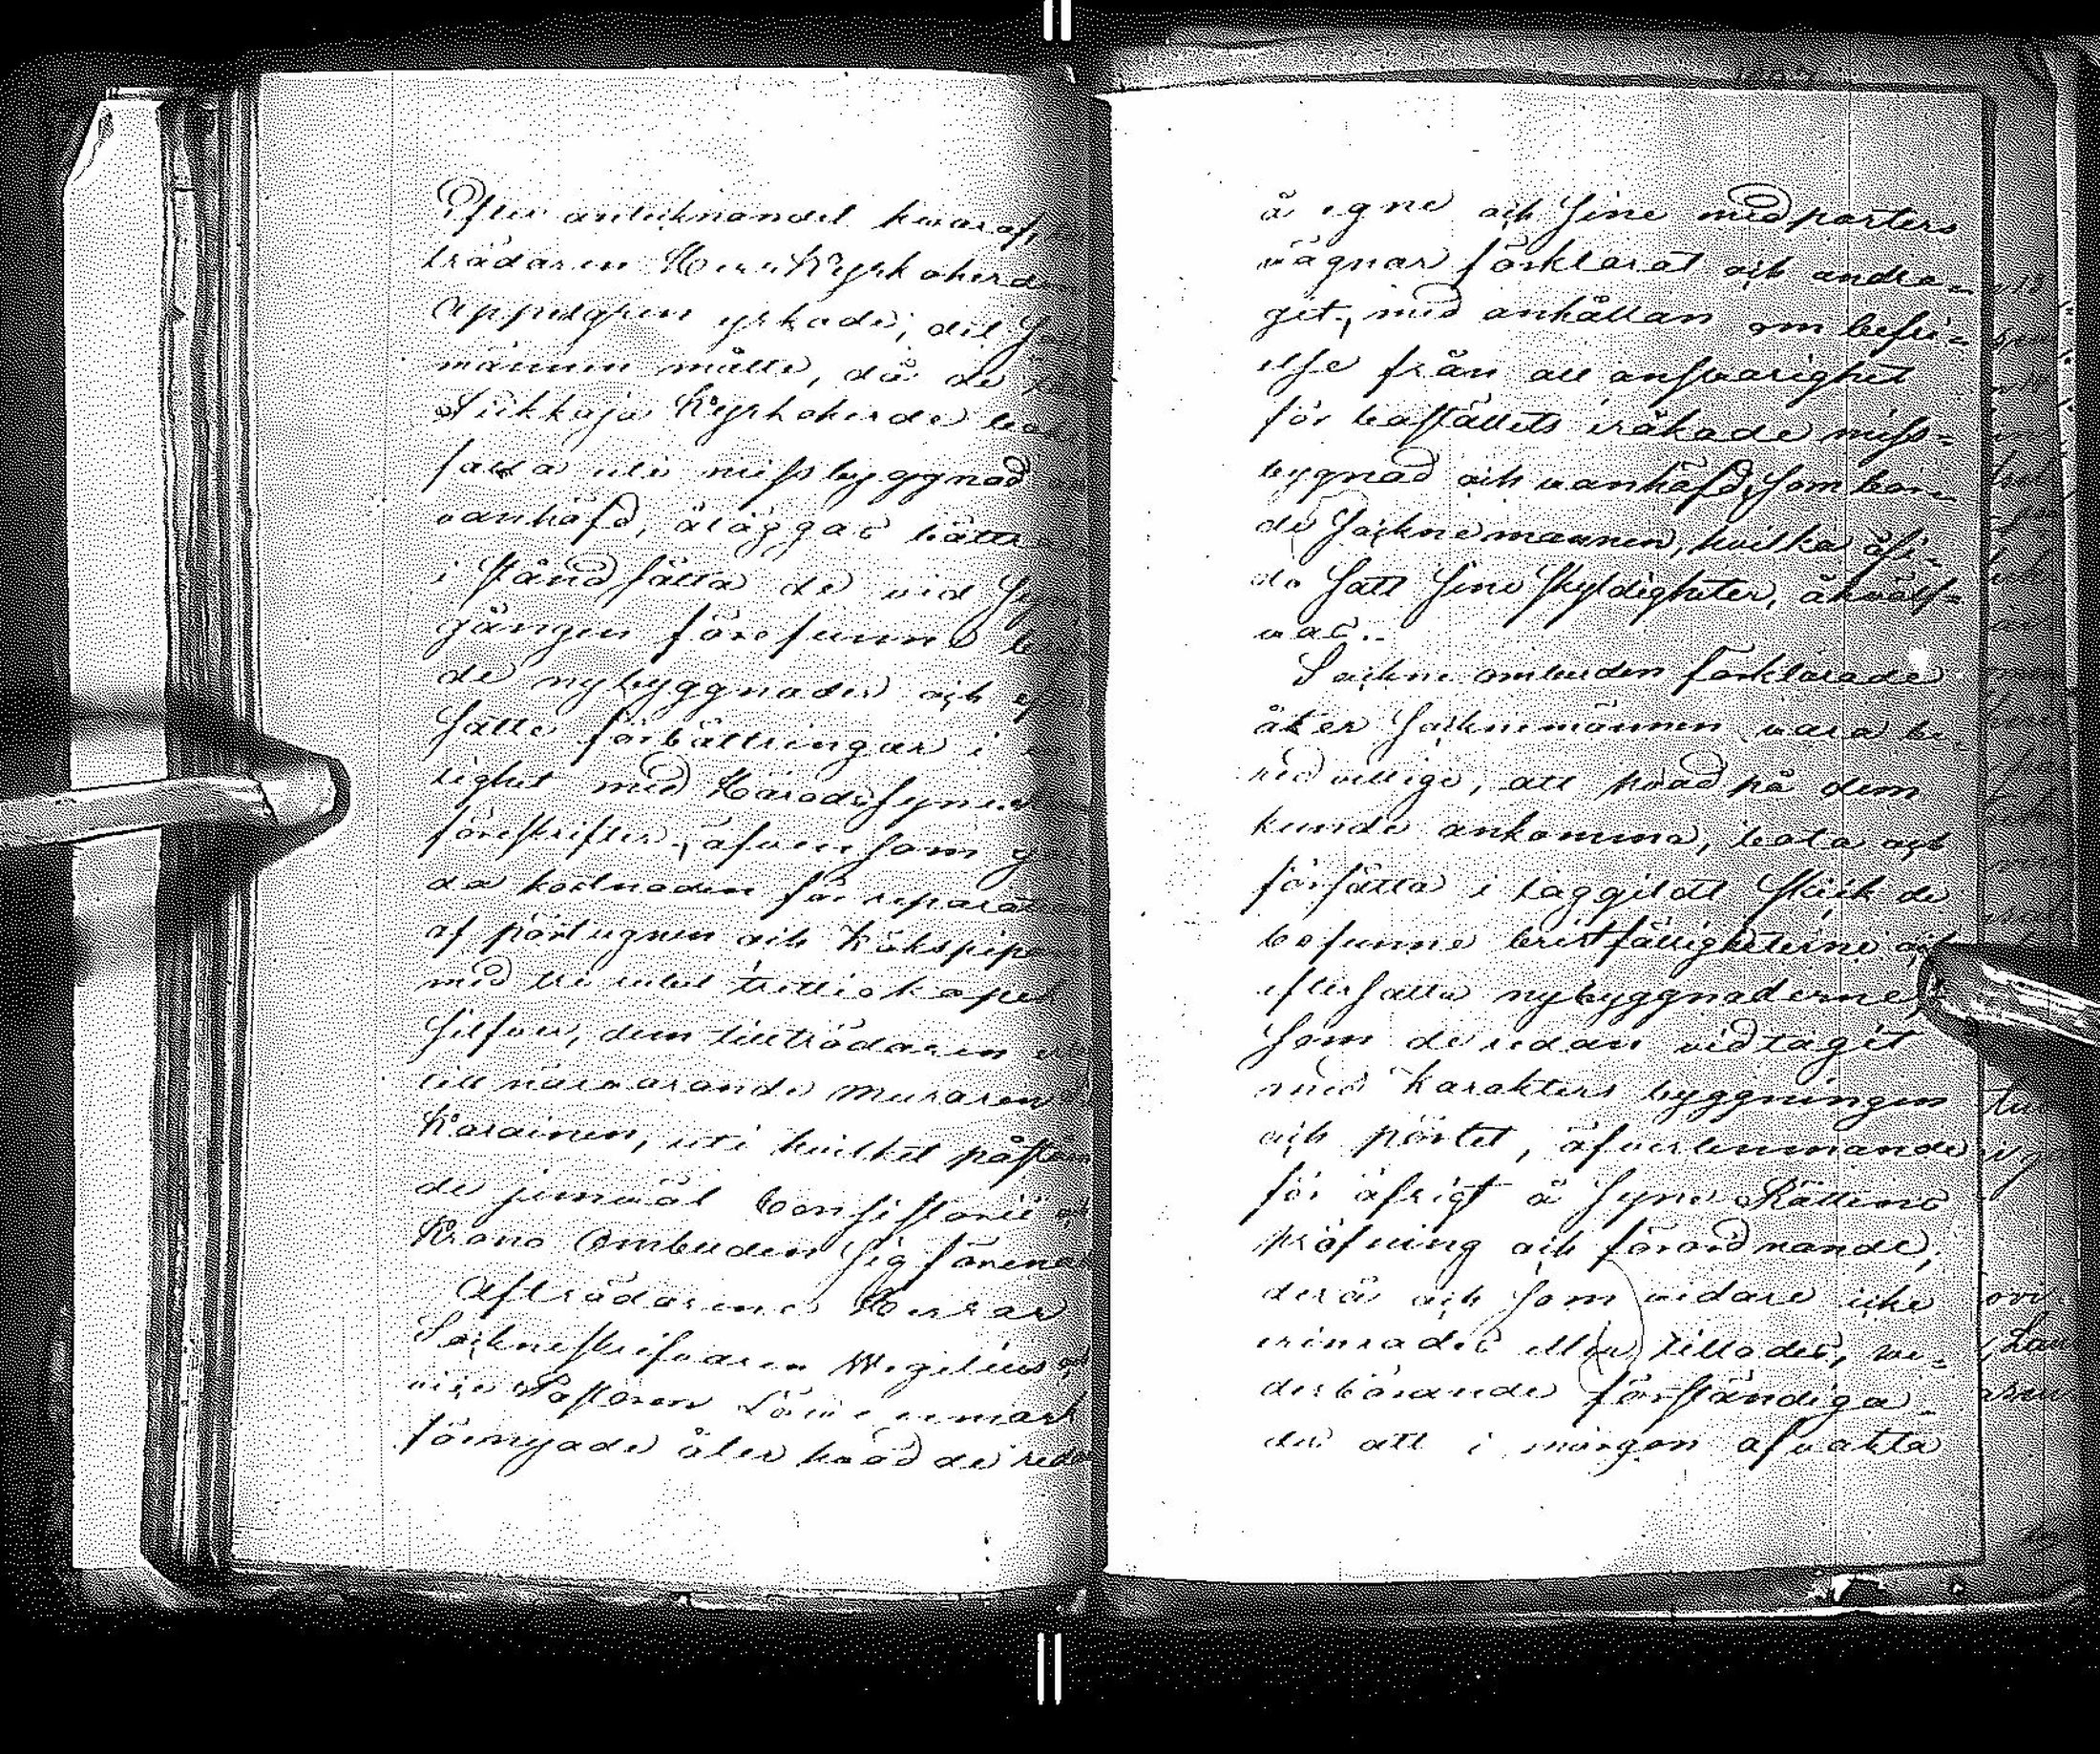 Efter antecknandet hwaraf
trädaren Herr Kyrkoherden
Appelgren yrkade, det
männen måtte, då de
Liikkaja Kyrkoherde
falla uti missbyggnad
vanhäfd, åläggas
i stånd sätta de vid
gången förefunne
de nybyggnader och
satte förbättringar i
lighet med Häradssynens
föreskrifter, äfvensom
da kostnaden för
af pörtugnen och Kökspipan
med tre rubel trettio kopek
silfver, dem tillträdaren
till närvarande muraren
Karainen, uti hvilket påståen
de jemväl Consistorii
Krono Ombuden sig förenade
Afträdarene Herrar
Sockneskrifvaren Wegelius
vice Pastoren
förnyade åter hvad de redan
å egne och sine medparters
vägnar förklarat och andra-
get, med anhållan om befri-
else från all ansvarighet
för boställets iråkade miss-
bygnad och vanhäfd, som bor-
de Socknemännen, hvilka åsi-
do satt sine skyldigheter, åhvälf-
vas.
Sockne ombuden förklarade
åter Socknemännen vara be-
redvillige, att hvad på dem
kunde ankomma, bota och
försätta i laggildt skick de
befunne bristfälligheterne och
eftersatta nybyggnaderne,
som de redan vidtagit
med Karakters byggningen
och pörtet, öfverlemnande
för öfrigt å Syne Rättens
pröfning och förordnande;
derå och som vidare icke
erinrades eller tillades, we-
derbörande förständiga-
des att i morgon afvakta